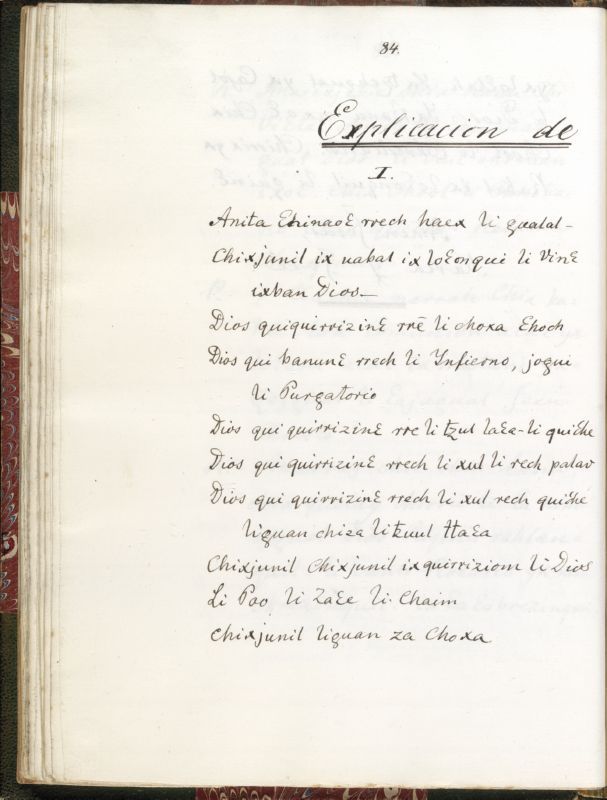 84.
Explicacion de
I.
Anita Ehinaoɛ rrech haex li gualal-
Chixjunil ix uabat ix loɛonqui li Vinɛ
ixban Dios—
Dios quiquirrizinɛ rrē li choxa Ehoch
Dios qui banunɛ rrech li Ynfierno, joqui
li Purgatorio
Dios qui quirrizinɛ rre li tzul laɛa-li quiɛhe
Dios qui quirrizinɛ rrech li xul li rech palav
Dios qui quirrizinɛ rrech li xul rech quiɛhé
liguan chiza li tzuul ttaɛa
Chixjunil Chixjunil ixquirriziom li Dios
Li Poo li Zaɛe li Chaim
Chixjunil liguan za Choxa